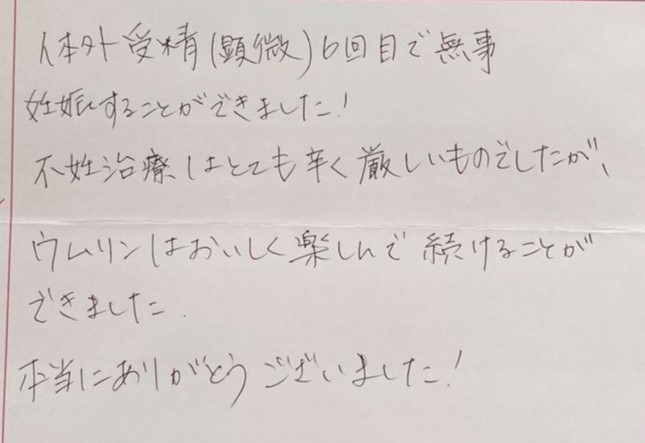 体外受精(顕微)6回目で無事
妊娠することができました!
不妊治療はとても辛く厳しいものでしたが、
ウムリンはおいしく楽しんで続けることが
できました.
本当にありがとうございました!